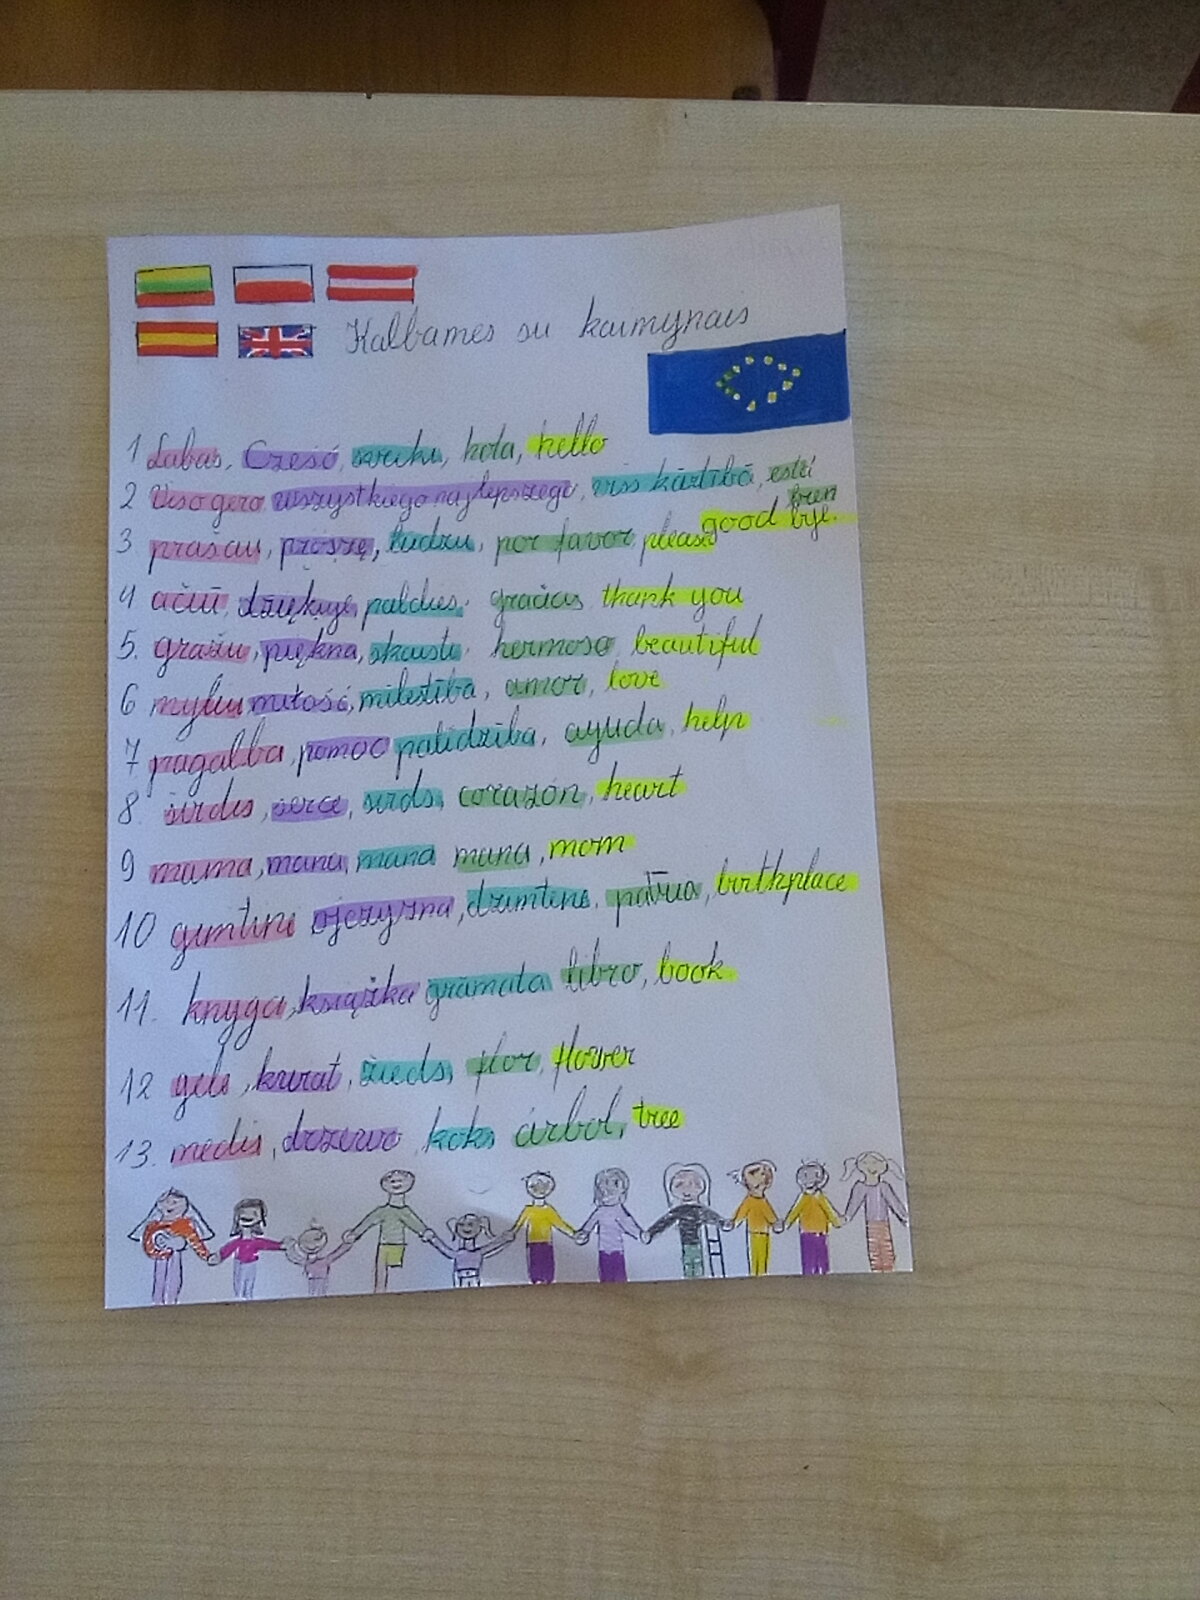 Kalbamės su kaimynais
1 Labas, Cześć, sveiki, hola, hello
2 Viso gero wszystkiego najlepszego, viss kārtībā, está bien good bye.
3 prašau, proszę, lūdzu, por favor, please
4 ačiū, dziękuję, paldies. gracias, thank you
5. gražu, piękna, skaista, hermoso, beautiful
6 myliu, miłość, milestība, amor, love
7 pagalba, pomoc palīdzība, ayuda, help
8. širdis, serce, sirds, corazón, heart
9 mama, mama, mana mama, mom
10 gimtinė ojczyzna, dzimtene, patria, birthplace
11. knyga, książka grāmata libro, book
12 gėlė, kwiat, zieds, flor, flower
13. medis, drzewo koks árbol, tree